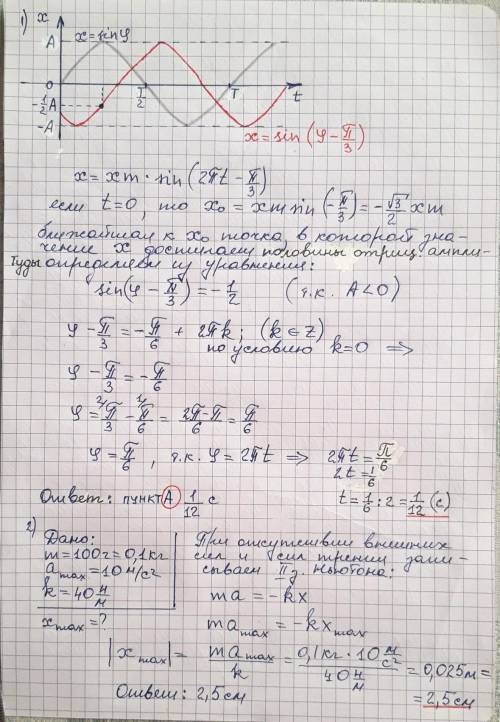 1)
x
x = sin φ
A
0
-1/2 A
-A
T/2
T
t
x = sin(φ - π/3)
x = xm · sin(2πt - π/3)
если t=0, то x₀ = xm sin(-π/3) = -√3/2 xm
ближайшая к x₀ точка, в которой зна-
чение x достигает половины отриц. ампли-
туды определяем из уравнения:
sin(φ - π/3) = -1/2 (т.к. A<0)
φ - π/3 = -π/6 + 2πk; (k ∈ Z)
по условию k=0 ⇒
φ - π/3 = -π/6
φ = 2/ π/3 - 1/ π/6 = 2π-π/6 = π/6
φ = π/6, т.к. φ = 2πt ⇒ 2πt = π/6
2t = 1/6
t = 1/6 : 2 = 1/12 (с)
Ответ: пункт А 1/12 с
2)
Дано:
m = 100г = 0,1 кг
a max = 10 м/с²
k = 40 н/м
x max = ?
При отсутствии внешних
сил и сил трения запи-
сываем II з. Ньютона:
ma = -kx
ma max = -kx max
|x max| = ma max/k = 0,1кг · 10 м/с² / 40 н/м = 0,025 м =
= 2,5 см
Ответ: 2,5 см